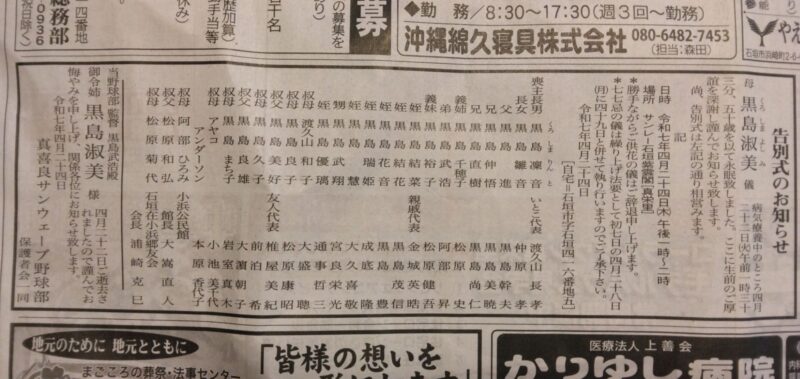 告別式のお知らせ
母 黒島淑美 儀
くろ しま よし み
病気療養中のところ四月
二十二日(火)午前一時三十
三分、五十歳を以て永眠致しました。ここに生前のご厚
誼を深謝し謹んでお知らせ致します。
尚、告別式は左記の通り相営みます。
記
日時 令和七年四月二十四日(木)午後一時〜二時
場所 サンレー石垣紫雲閣[真栄里]
*勝手ながらご供花の儀はご辞退申し上げます。
*七七忌の儀は繰り上げ法要として初七日の四月二十八日
(月)に四十九日と併せて執り行いますのでご了承下さい。
令和七年四月二十四日
[自宅=石垣市字石垣四一六番地五]
喪主長男 黒島凜音
くろ しま りん と
長女 黒島雛音
父 黒島進
兄 黒島伸悟
兄 黒島直樹
義姉 黒島千穂子
弟 黒島武浩
義妹 黒島裕子
姪 黒島結花
姪 黒島結音
姪 黒島瑞姫
甥 黒島武翔
姪 黒島優璃
母 渡久山和子
叔母 黒島良子
叔母 黒島久子
叔父 黒島良雄
叔母 黒島まち子
叔母 アヤコ
アンダーソン
叔母 阿部ひろみ
叔父 松原和弘
叔母 松原菊代
いとこ代表 渡久山長孝
仲原孝
黒島幹夫
黒島美暁
黒島尚仁
松原史
阿部昇
松原健吾
親戚代表 金城英皓
黒島茂信
成底隆
大久喜豊
宮良栄光
通事哲三
大盛聰
松原康昭
友人代表 椎屋美紀
前泊希
大濵朝子
岩室真木
小池美千代
本原香代子
小浜公民館
館長 大嵩直人
石垣在小浜郷友会
会長 浦崎克巳
当野球部 監督 黒島武浩殿
御令姉 黒島淑美 様
四月二十二日ご逝去さ
れましたので謹んでお
悔やみを申し上げ、関係各位にお知らせ致します。
令和七年四月二十四日
真喜良サンウェーブ野球部
保護者会一同
募
●勤 務/8:30〜17:30(週3回〜勤務)
沖縄綿久寝具株式会社
080-6482-7453
(担当:森田)
石垣市浜崎町2-6-
総務部
0936
地元のために 地元とともに
まごころの葬祭・法事センター
「皆様の想いを
医療法人上善会
かりゆし病院